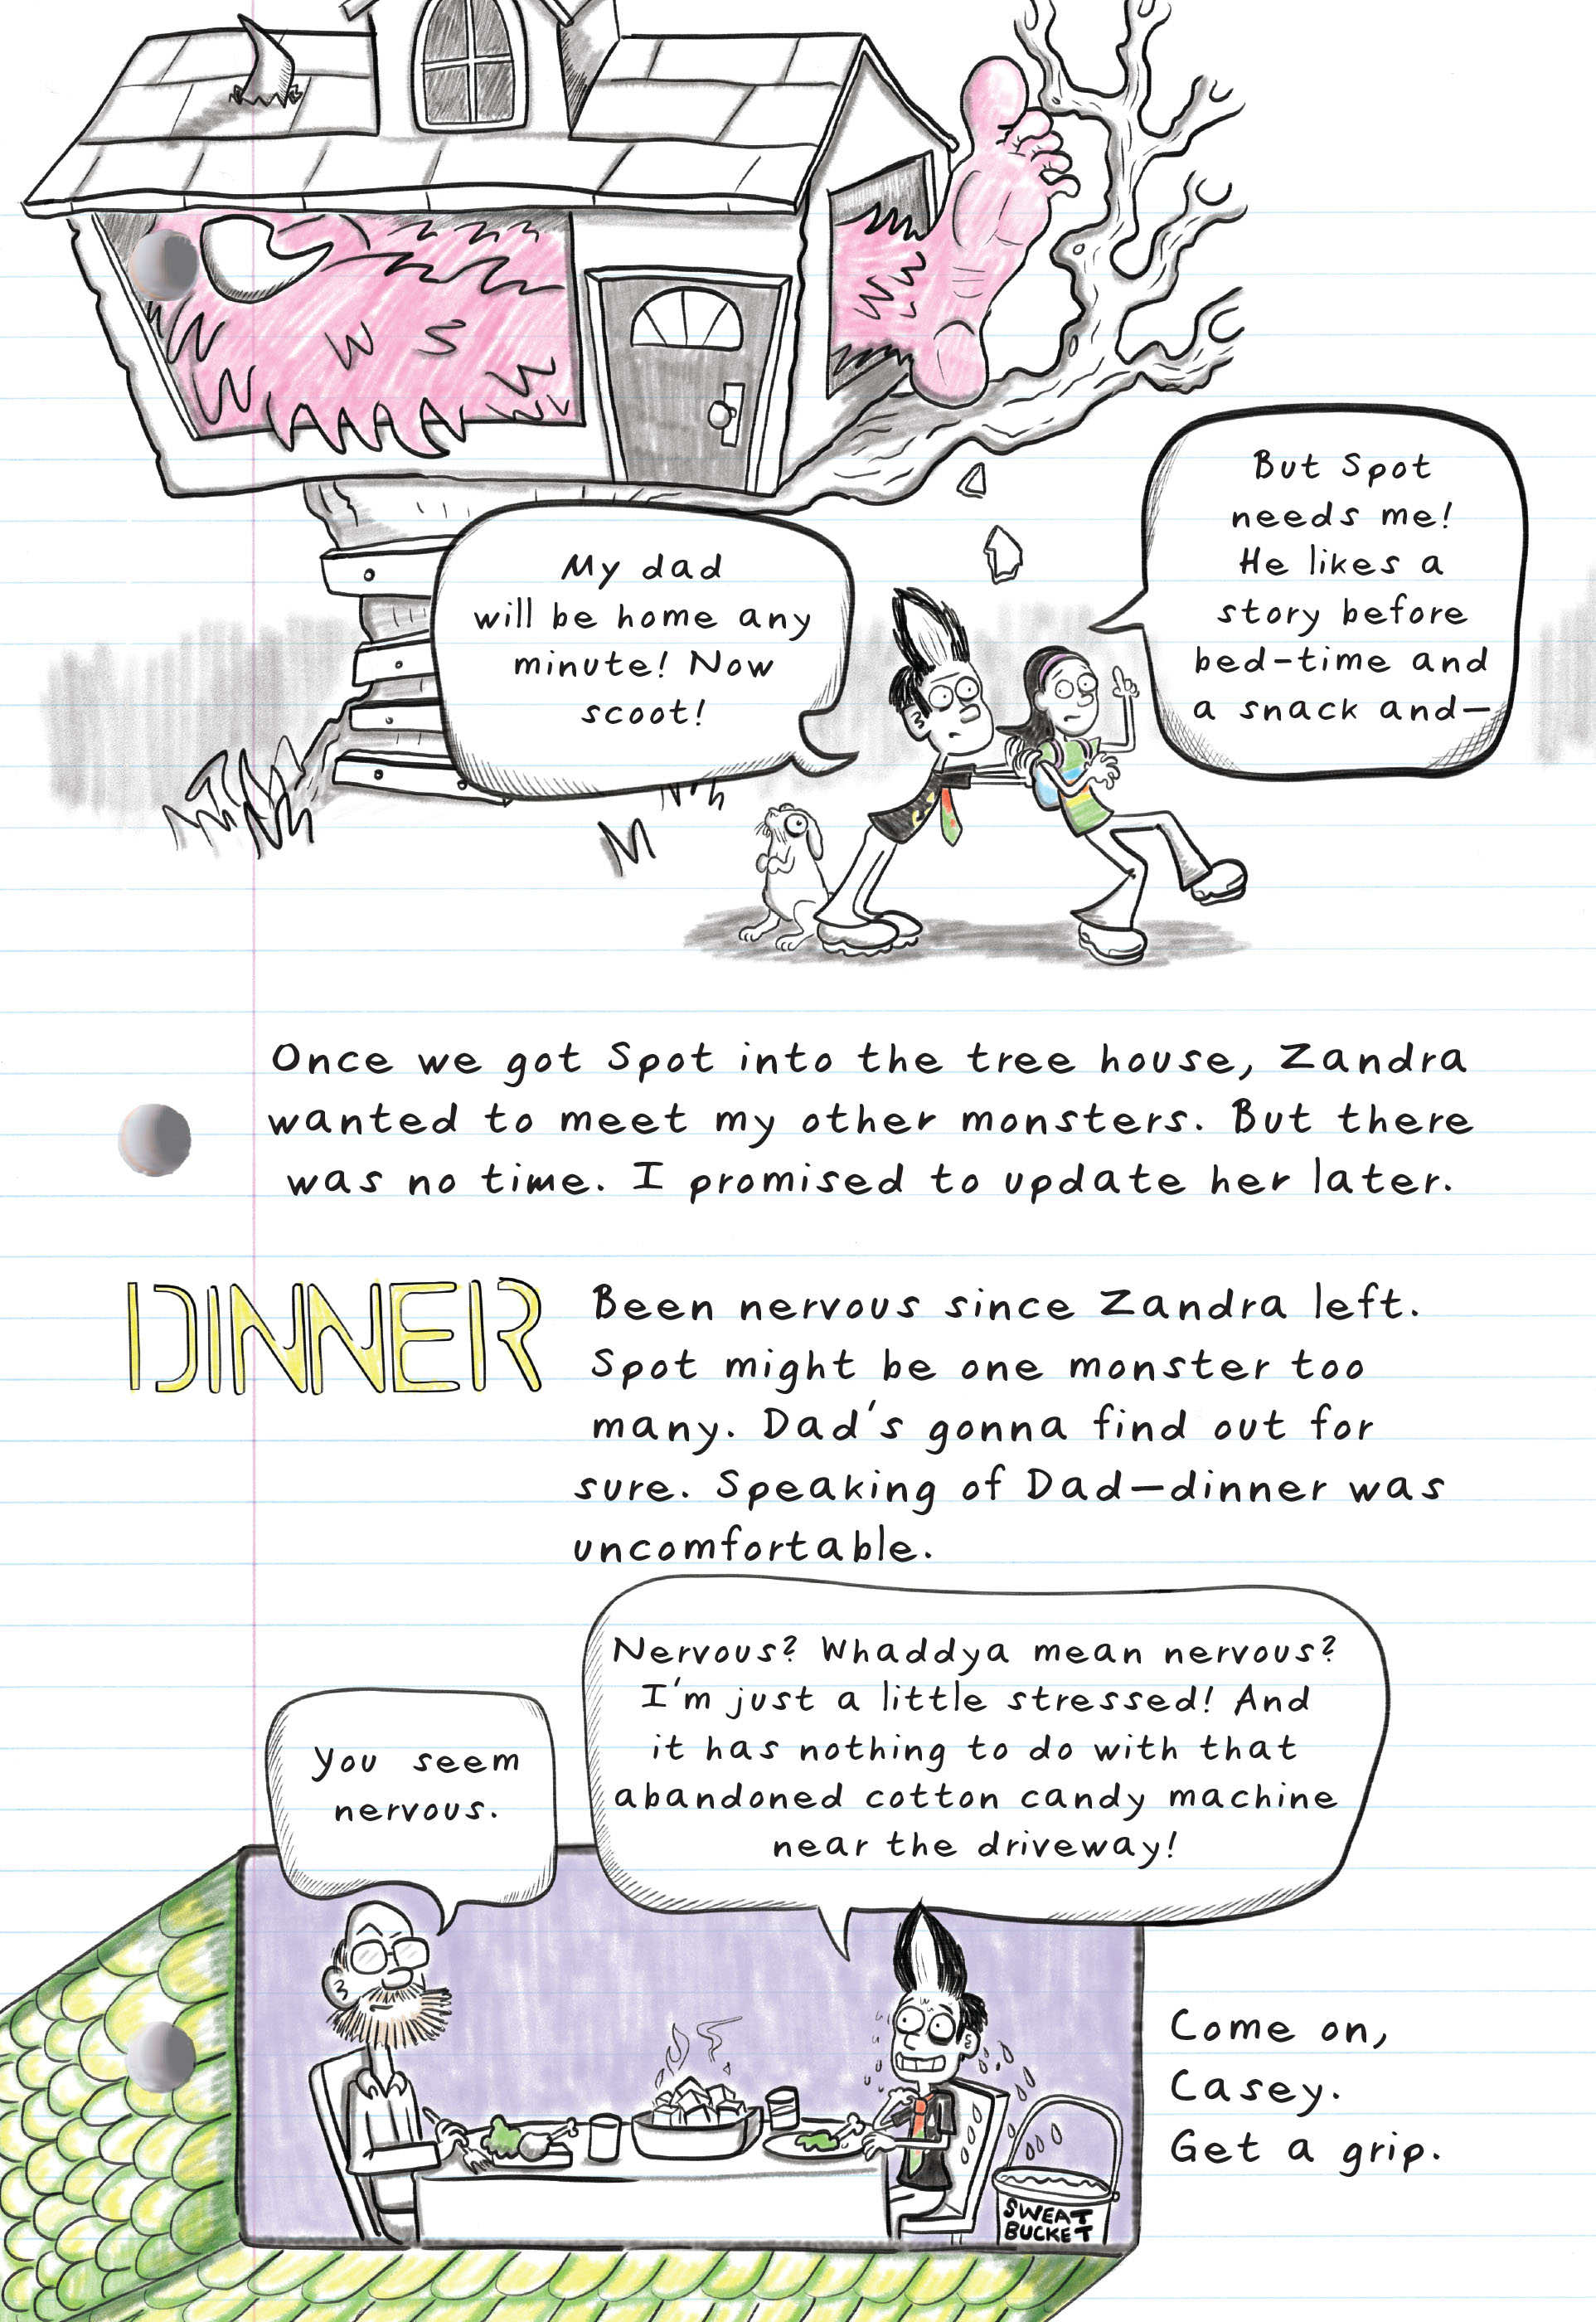 My dad
will be home any
minute! Now
scoot!
But Spot
needs me!
He likes a
story before
bed-time and
a snack and—
Once we got Spot into the tree house, Zandra
wanted to meet my other monsters. But there
was no time. I promised to update her later.
DINNER
Been nervous since Zandra left.
Spot might be one monster too
many. Dad's gonna find out for
sure. Speaking of Dad—dinner was
uncomfortable.
You seem
nervous.
Nervous? Whaddya mean nervous?
I'm just a little stressed! And
it has nothing to do with that
abandoned cotton candy machine
near the driveway!
Come on,
Casey.
Get a grip.
SWEAT
BUCKET